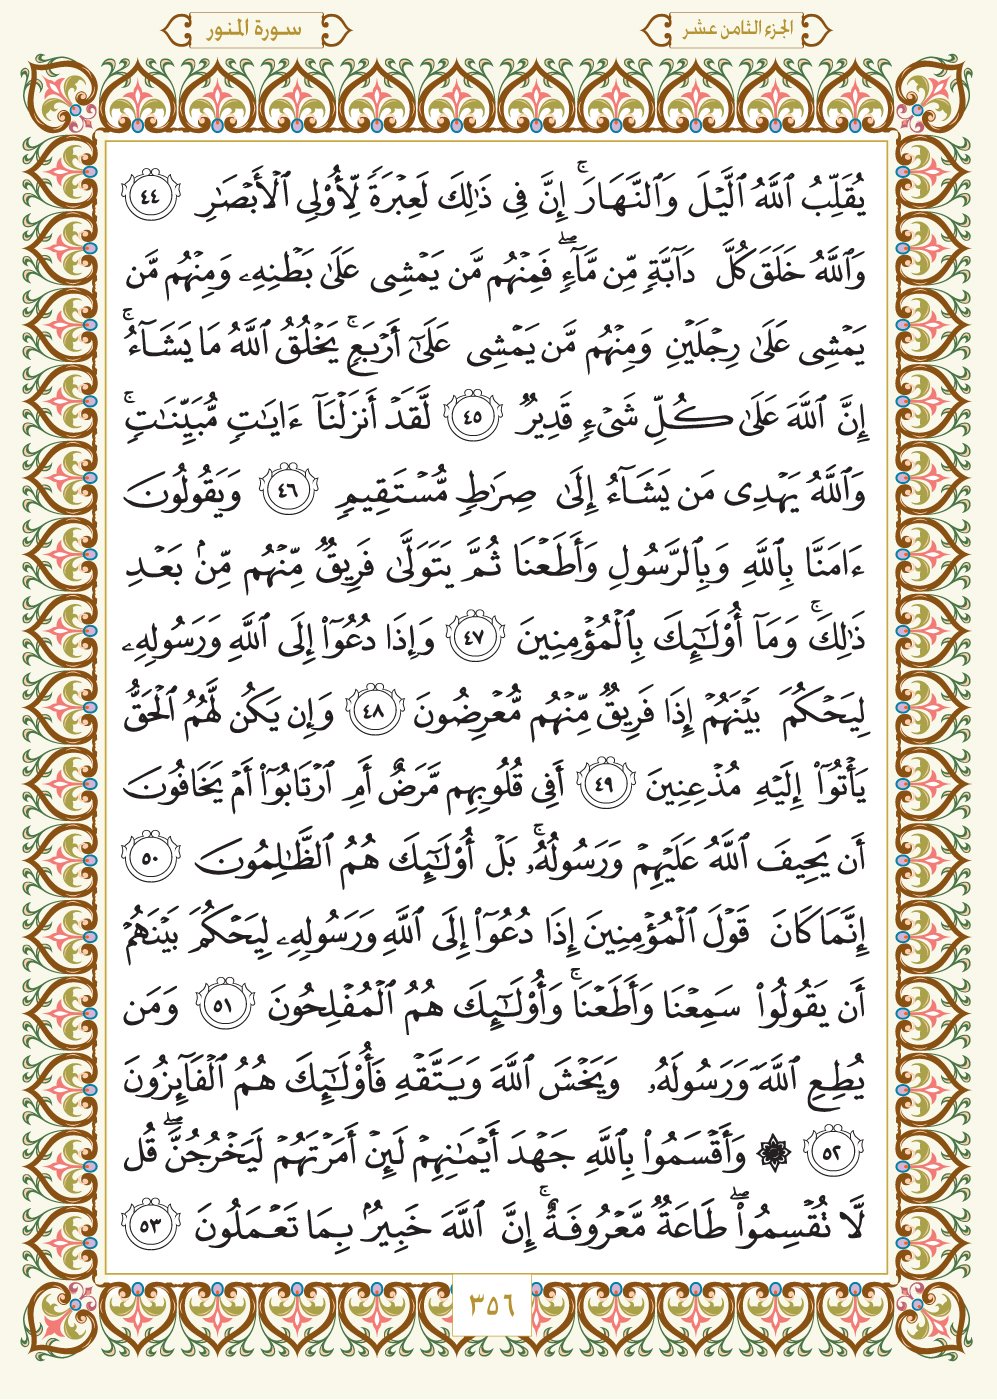 الجزء الثامن عشر
سورة النور
يُقَلِّبُ ٱللَّهُ ٱلَّيْلَ وَٱلنَّهَارَۚ إِنَّ فِى ذَٰلِكَ لَعِبْرَةً لِّأُو۟لِى ٱلْأَبْصَٰرِ ٤٤
وَٱللَّهُ خَلَقَ كُلَّ دَآبَّةٍ مِّن مَّآءٍۖ فَمِنْهُم مَّن يَمْشِى عَلَىٰ بَطْنِهِۦ وَمِنْهُم مَّن
يَمْشِى عَلَىٰ رِجْلَيْنِ وَمِنْهُم مَّن يَمْشِى عَلَىٰٓ أَرْبَعٍۚ يَخْلُقُ ٱللَّهُ مَا يَشَآءُۚ
إِنَّ ٱللَّهَ عَلَىٰ كُلِّ شَىْءٍ قَدِيرٌ ٤٥ لَّقَدْ أَنزَلْنَآ ءَايَٰتٍ مُّبَيِّنَٰتٍۚ
وَٱللَّهُ يَهْدِى مَن يَشَآءُ إِلَىٰ صِرَٰطٍ مُّسْتَقِيمٍ ٤٦ وَيَقُولُونَ
ءَامَنَّا بِٱللَّهِ وَبِٱلرَّسُولِ وَأَطَعْنَا ثُمَّ يَتَوَلَّىٰ فَرِيقٌ مِّنْهُم مِّنۢ بَعْدِ
ذَٰلِكَۚ وَمَآ أُو۟لَٰٓئِكَ بِٱلْمُؤْمِنِينَ ٤٧ وَإِذَا دُعُوٓا۟ إِلَى ٱللَّهِ وَرَسُولِهِۦ
لِيَحْكُمَ بَيْنَهُمْ إِذَا فَرِيقٌ مِّنْهُم مُّعْرِضُونَ ٤٨ وَإِن يَكُن لَّهُمُ ٱلْحَقُّ
يَأْتُوٓا۟ إِلَيْهِ مُذْعِنِينَ ٤٩ أَفِى قُلُوبِهِم مَّرَضٌ أَمِ ٱرْتَابُوٓا۟ أَمْ يَخَافُونَ
أَن يَحِيفَ ٱللَّهُ عَلَيْهِمْ وَرَسُولُهُۥۚ بَلْ أُو۟لَٰٓئِكَ هُمُ ٱلظَّٰلِمُونَ ٥٠
إِنَّمَا كَانَ قَوْلَ ٱلْمُؤْمِنِينَ إِذَا دُعُوٓا۟ إِلَى ٱللَّهِ وَرَسُولِهِۦ لِيَحْكُمَ بَيْنَهُمْ
أَن يَقُولُوا۟ سَمِعْنَا وَأَطَعْنَاۚ وَأُو۟لَٰٓئِكَ هُمُ ٱلْمُفْلِحُونَ ٥١ وَمَن
يُطِعِ ٱللَّهَ وَرَسُولَهُۥ وَيَخْشَ ٱللَّهَ وَيَتَّقْهِ فَأُو۟لَٰٓئِكَ هُمُ ٱلْفَآئِزُونَ
٥٢ ۞ وَأَقْسَمُوا۟ بِٱللَّهِ جَهْدَ أَيْمَٰنِهِمْ لَئِنْ أَمَرْتَهُمْ لَيَخْرُجُنَّۖ قُل
لَّا تُقْسِمُوا۟ۖ طَاعَةٌ مَّعْرُوفَةٌۚ إِنَّ ٱللَّهَ خَبِيرٌۢ بِمَا تَعْمَلُونَ ٥٣
٣٥٦